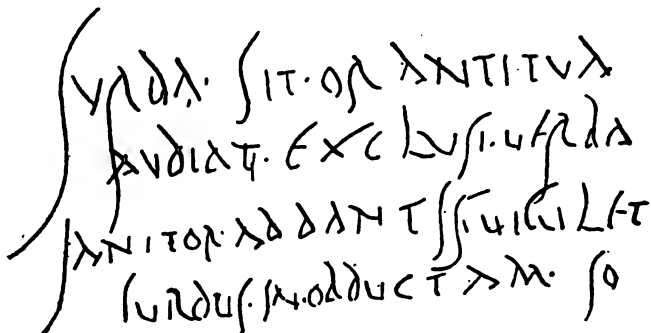 SVRDA· SIT·ORANTI·TVA
AVDIAT· EXCLVSI·VERBA
IANITOR· AD DANTIS VIGILET
SVRDVS·IN·OBDVCTAM· SO